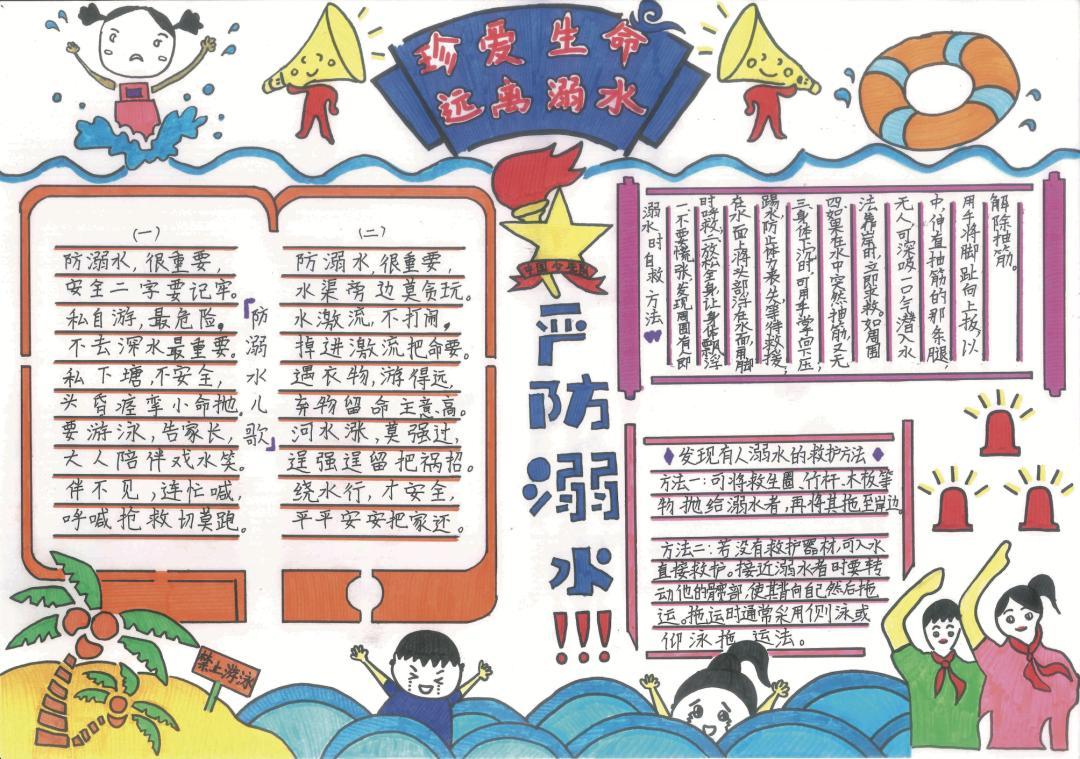 珍爱生命
远离溺水
(一)
防溺水,很重要,
安全二字要记牢。
私自游,最危险,
不去深水最重要。
私下塘,不安全,
头昏痉挛小命抛。
要游泳,告家长,
大人陪伴戏水笑。
伴不见,连忙喊,
呼喊抢救切莫跑。
『防溺水儿歌』
(二)
防溺水,很重要,
水渠旁边莫贪玩。
水激流,不打闹,
掉进激流把命要。
遇衣物,游得远,
弃物留命主意高。
河水涨,莫强过,
逞强逗留把祸招。
绕水行,才安全,
平平安安把家还。
中国少年队
严防溺水!!!
溺水时自救方法
一.不要慌张,发现周围有人即
时呼救,二放松全身,让身体飘浮
在水面上,将头部浮在水面,用脚
踢水,防止体力丧失,等待救援,
三.身体下沉时,可用手掌向下压,
四.如果在水中突然抽筋,又无
法靠岸时,立即求救。如周围
无人,可深吸一口气潜入水
中,伸直抽筋的那条腿,
用手将脚趾向上扳,以
解除抽筋。
发现有人溺水的救护方法
方法一:可将救生圈、竹杆、木板等
物抛给溺水者,再将其拖至岸边。
方法二:若没有救护器材,可入水
直接救护。接近溺水者时要转
动他的髋部,使其背向自己然后拖
运。拖运时通常采用侧泳或
仰泳拖运法。
禁止游泳